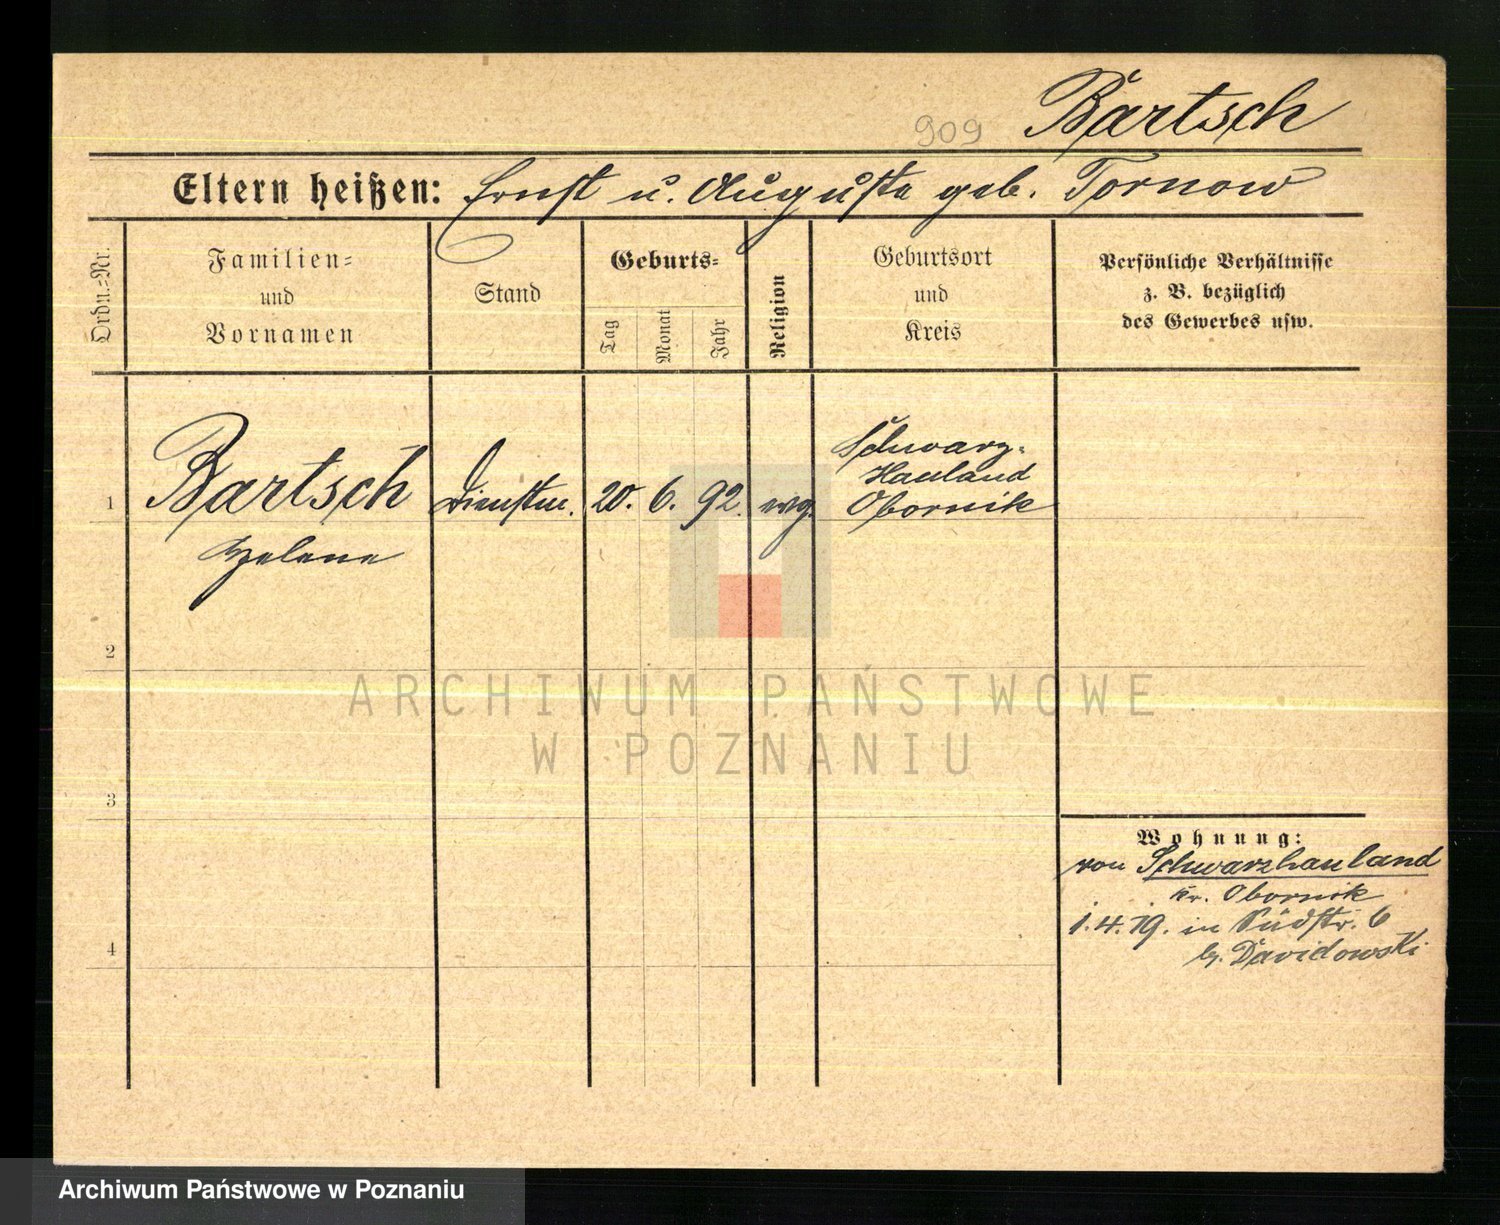 909 Bartsch
Eltern heißen: Ernst u. Auguste geb. Tornow
Ordn.-Nr.
Familien-
und
Vornamen
Stand
Geburts-
Tag
Monat
Jahr
Religion
Geburtsort
und
Kreis
Persönliche Verhältnisse
z. B. bezüglich
des Gewerbes usw.
1 Bartsch Dienstm. 20. 6. 92. evg. Schwarz-
Hauland
Obornik
Helene
2
3
4
Wohnung:
von Schwarzhauland
Kr. Obornik
1.4.19. in Südstr. 6
b. Davidowski
ARCHIWUM PAŃSTWOWE
W POZNANIU
Archiwum Państwowe w Poznaniu